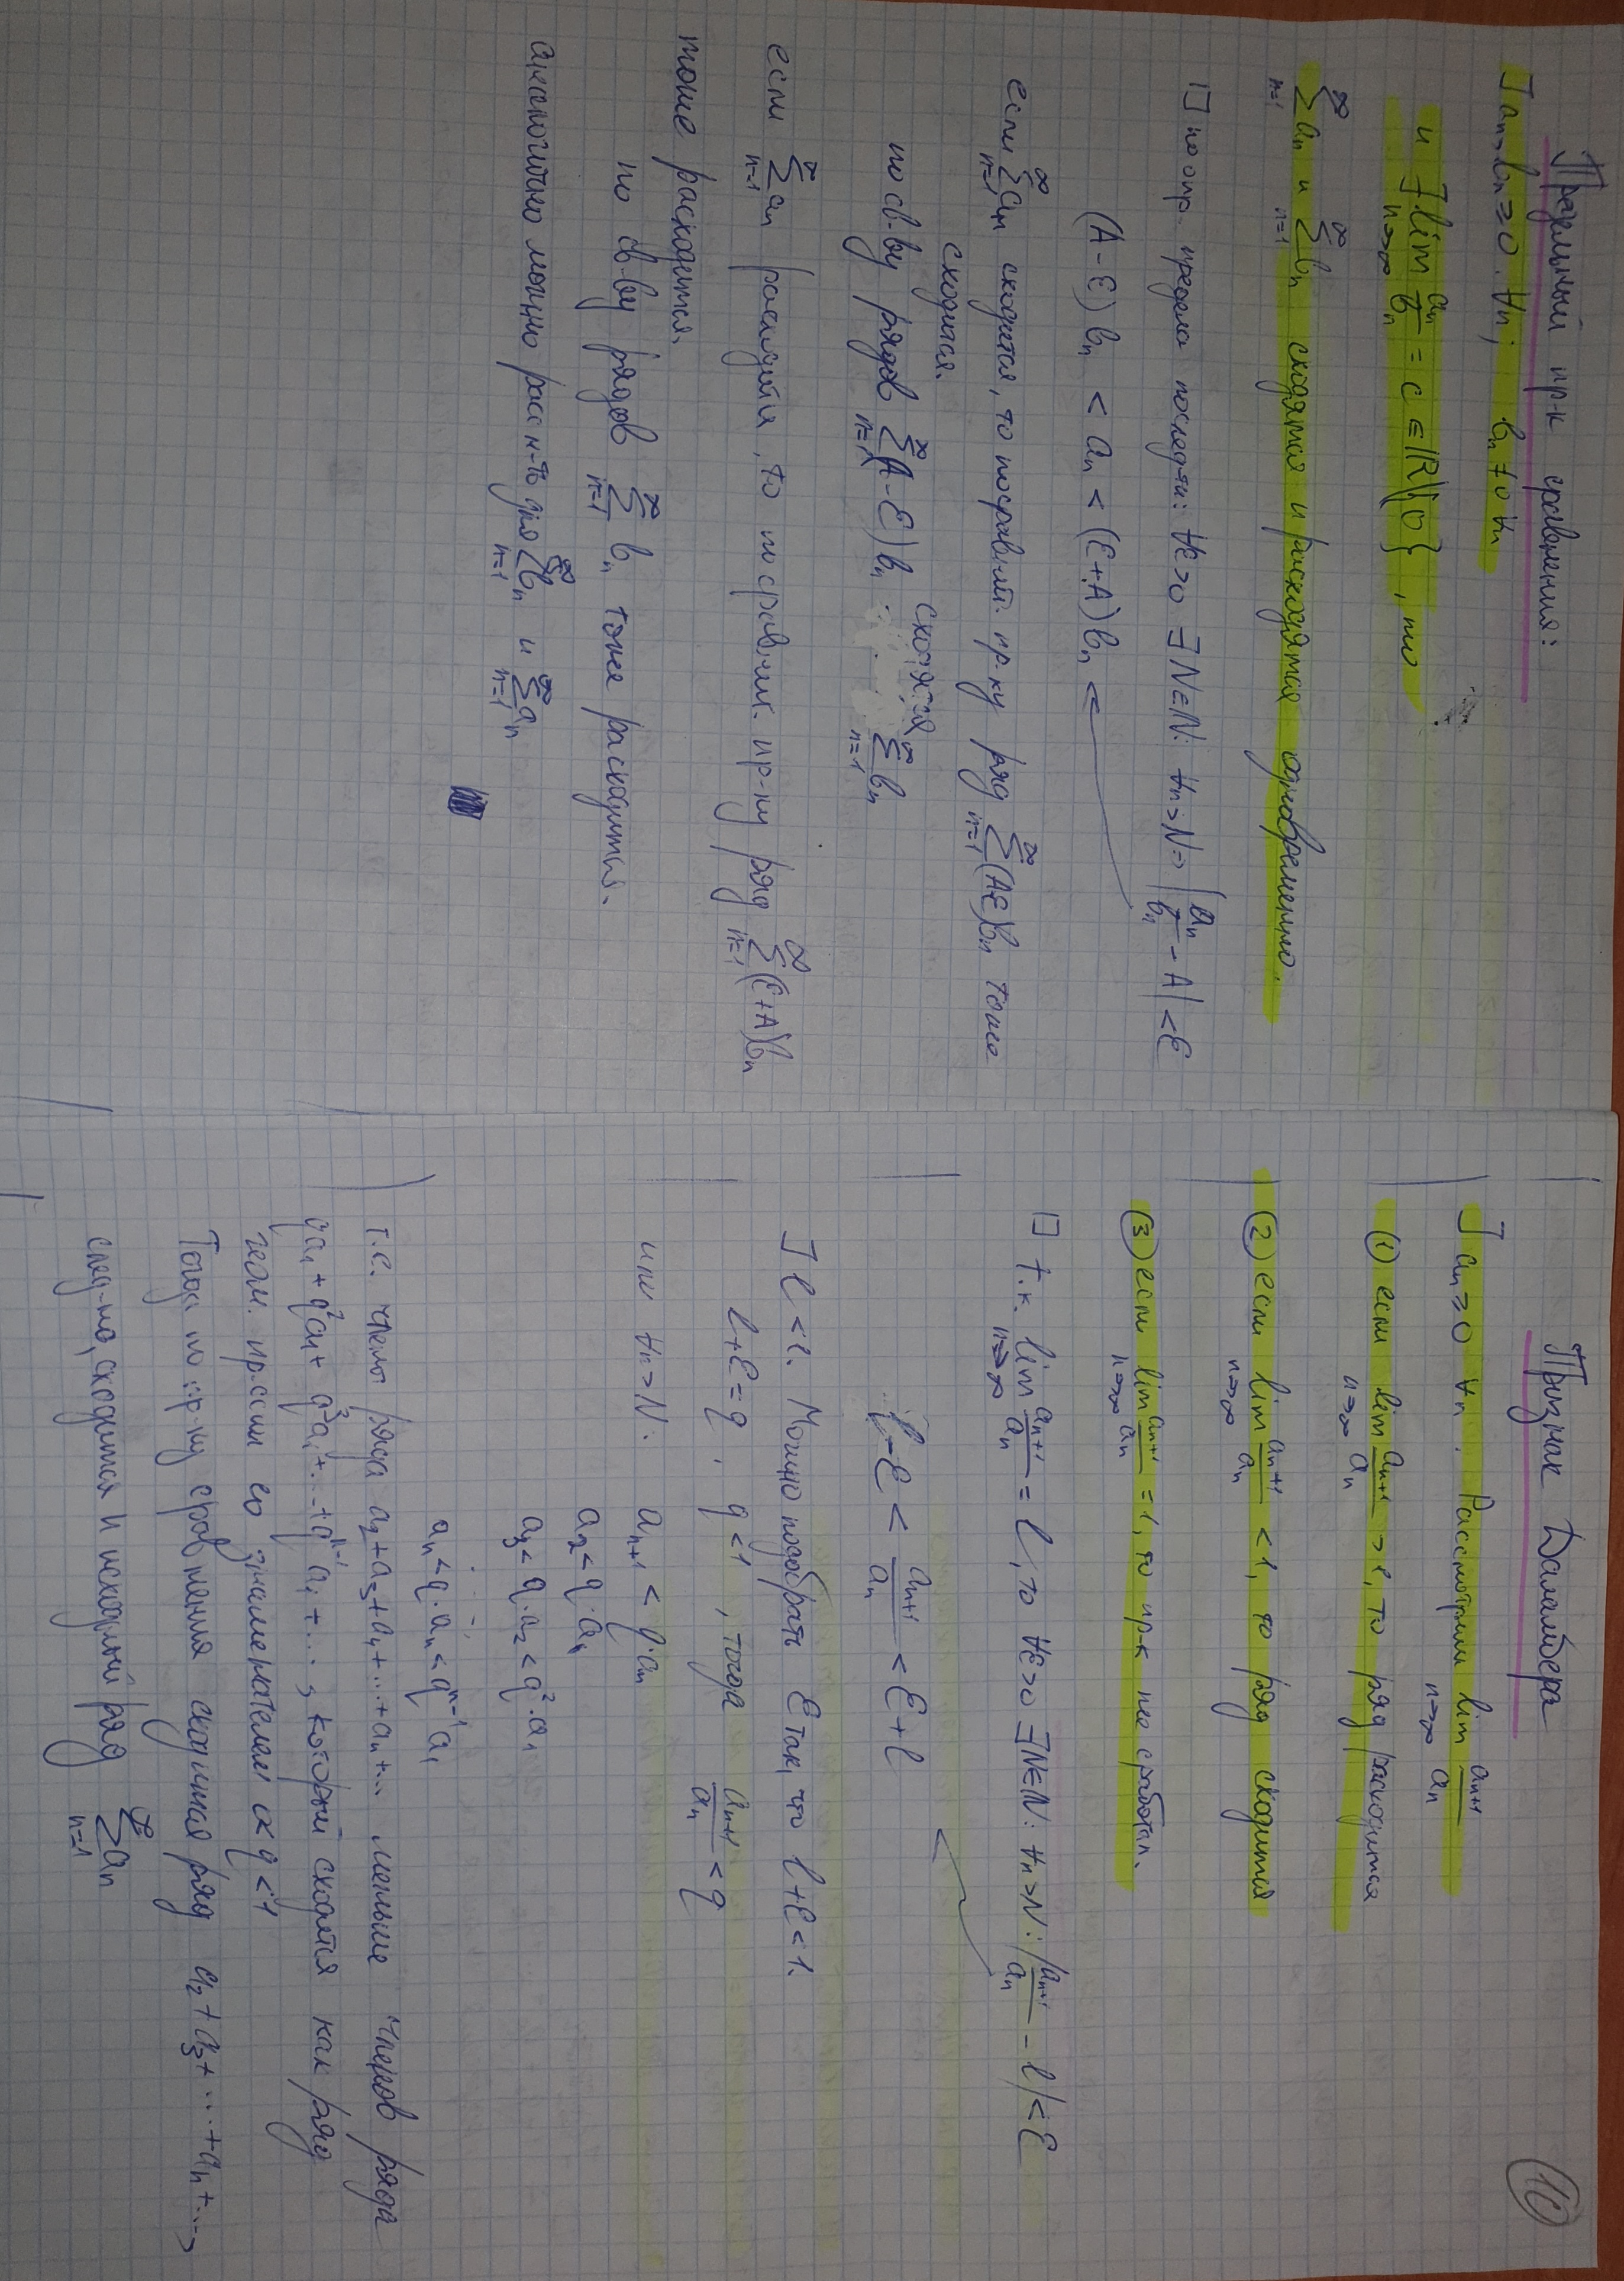 Предельный пр-к сравнения:
] aₙ, bₙ ≥ 0 ∀n; bₙ ≠ 0 ∀n
и ∃ lim_{n→∞} aₙ/bₙ = c ∈ ℝ\{0}, то
∑_{n=1}^∞ aₙ и ∑_{n=1}^∞ bₙ сходятся и расходятся одновременно.
□ по опр. предела послед-ти: ∀ε>0 ∃N∈ℕ: ∀n>N ⇒ |aₙ/bₙ - A| < ε
(A-ε)bₙ < aₙ < (ε+A)bₙ ←
если ∑_{n=1}^∞ aₙ сходится, то по сравнит. пр-ку ряд ∑_{n=1}^∞ (A-ε)bₙ тоже
сходится.
по св-ву рядов ∑_{n=1}^∞ (A-ε)bₙ сходятся ∑_{n=1}^∞ bₙ
если ∑_{n=1}^∞ aₙ , то по сравнит. пр-ку ряд ∑_{n=1}^∞ (ε+A)bₙ
тоже расходится.
по св-ву рядов ∑_{n=1}^∞ bₙ тоже расходится.
аналогично можно расс-ть для ∑_{n=1}^∞ bₙ и ∑_{n=1}^∞ aₙ
10
Признак Даламбера
] aₙ ≥ 0 ∀n. Рассмотрим lim_{n→∞} aₙ₊₁/aₙ
① если lim_{n→∞} aₙ₊₁/aₙ > 1, то ряд расходится
② если lim_{n→∞} aₙ₊₁/aₙ < 1, то ряд сходится
③ если lim_{n→∞} aₙ₊₁/aₙ = 1, то пр-к не сработал.
□ т.к. lim_{n→∞} aₙ₊₁/aₙ = l, то ∀ε>0 ∃N∈ℕ: ∀n>N: |aₙ₊₁/aₙ - l| < ε
l-ε < aₙ₊₁/aₙ < ε+l
] l<1. Можно подобрать ε так, что l+ε<1.
l+ε=q, q<1, тогда aₙ₊₁/aₙ < q
или ∀n>N. aₙ₊₁ < q·aₙ
a₂ < q·a₁
a₃ < q·a₂ < q²·a₁
aₙ < q·aₙ < qⁿ⁻¹a₁
т.е. члены ряда a₂+a₃+a₄+...+aₙ+... меньше членов ряда
qa₁+q²a₁+q³a₁+...+qⁿ⁻¹a₁+..., который сходится как ряд
геом. прссии со знаменателем q<1
Тогда по пр-ку сравнения сходится ряд a₂+a₃+...+aₙ+...→
след-но, сходится и исходный ряд ∑_{n=1}^∞ aₙ